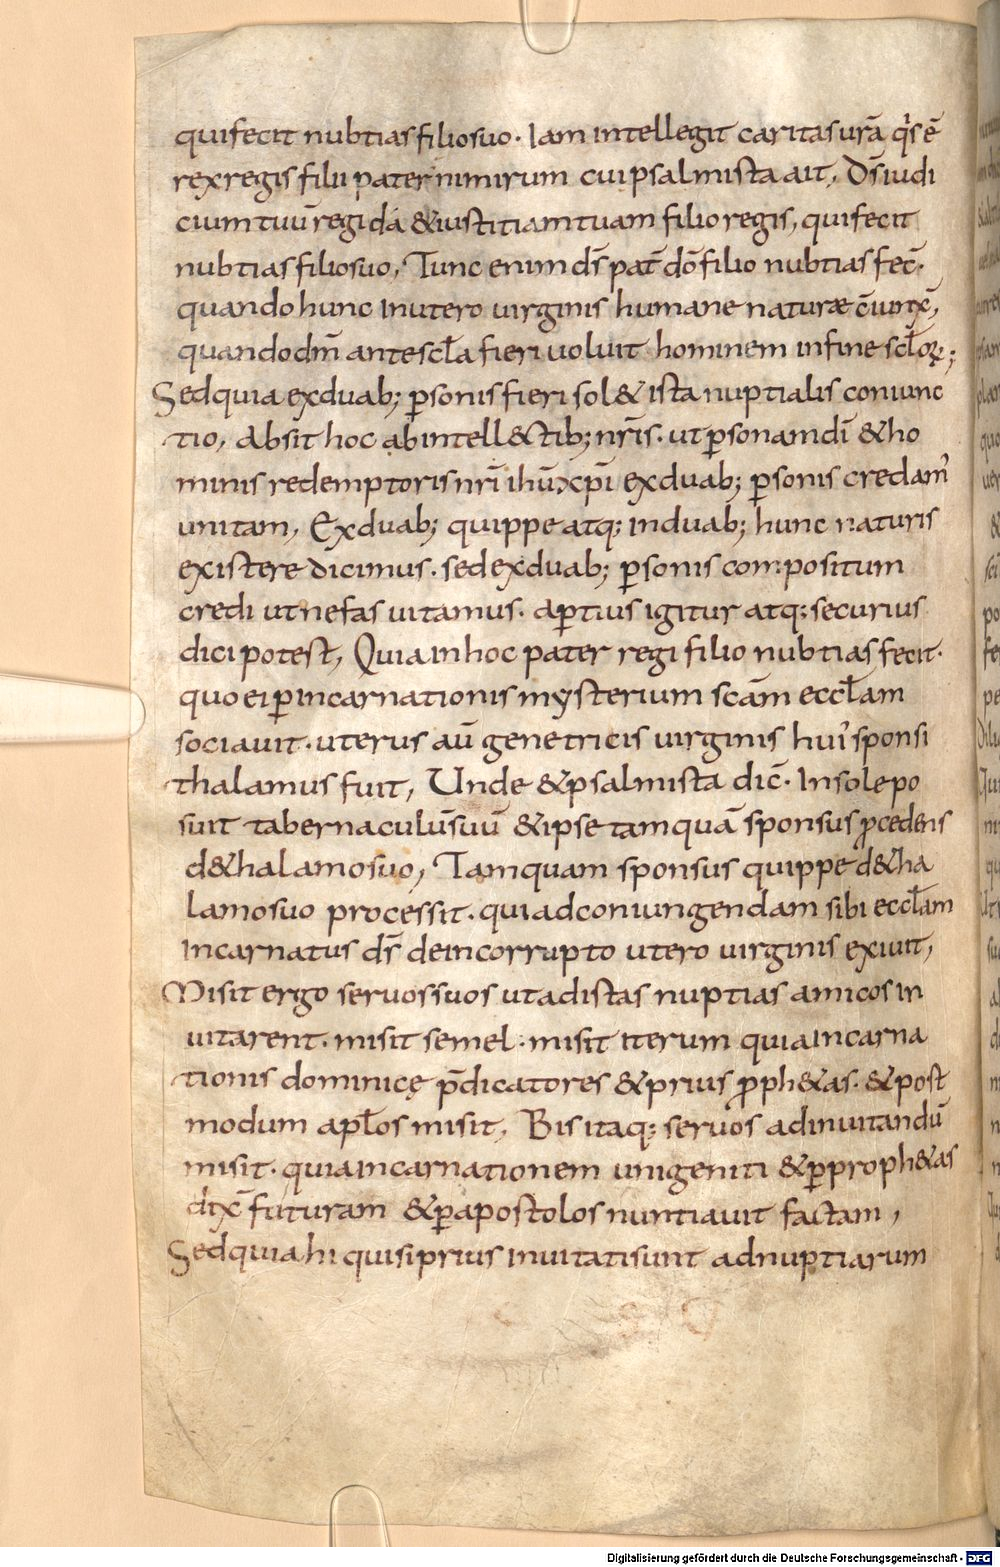 qui fecit nubtias filio suo· Iam intellegit caritas urā q̇s ē
rex regis filii pater nimirum cui psalmista ait, Ds̄ iudi
cium tuū regi da &iustitiam tuam filio regis, qui fecit
nubtias filio suo, Tunc enim ds̄ pat̄ dō filio nubtias fec̄·
quando hunc inutero uirginis humane naturæ c̄iunx̄,
quando dm̄ ante scła fieri uoluit hominem infine scłoꝝ;
Sed quia exduab; ꝑsonis fieri sol& ista nuptialis coniunc
tio, Absit hoc ab intell&ctib; nr̄is· ut ꝑsonam dī &ho
minis redemptoris nrī ihū xp̄i exduab; ꝑsonis credam᾿
unitam, Exduab; quippe atq; induab; hunc naturis
existere dicimus· sed exduab; ꝑsonis compositum
credi ut nefas uitamus· aꝑtius igitur atq; securius
dici potest, Quia inhoc pater regi filio nubtias fecit·
quo ei ꝑ incarnationis mysterium scām eccłam
sociauit· uterus aū genetricis uirginis hui᾿ sponsi
thalamus fuit, Unde &psalmista dic̄· In sole po
suit tabernaculū suū &ipse tamquā sponsus ꝓcedens
d&halamo suo, Tamquam sponsus quippe d&ha
lamo suo processit· qui adconiungendam sibi eccłam
incarnatus ds̄ deincorrupto utero uirginis exiuit,
Misit ergo seruos suos ut adistas nuptias amicos in
uitarent· misit semel· misit iterum quia incarna
tionis dominicę p̄dicatores &prius ꝓph&as· &post
modum apłos misit, Bis itaq; seruos adinuitandū
misit· quia incarnationem unigeniti &ꝑ proph&as
dix̄ futuram &ꝑ apostolos nuntiauit factam,
Sed quia hi qui si prius inuitati sunt ad nuptiarum
Digitalisierung gefördert durch die Deutsche Forschungsgemeinschaft - DFG